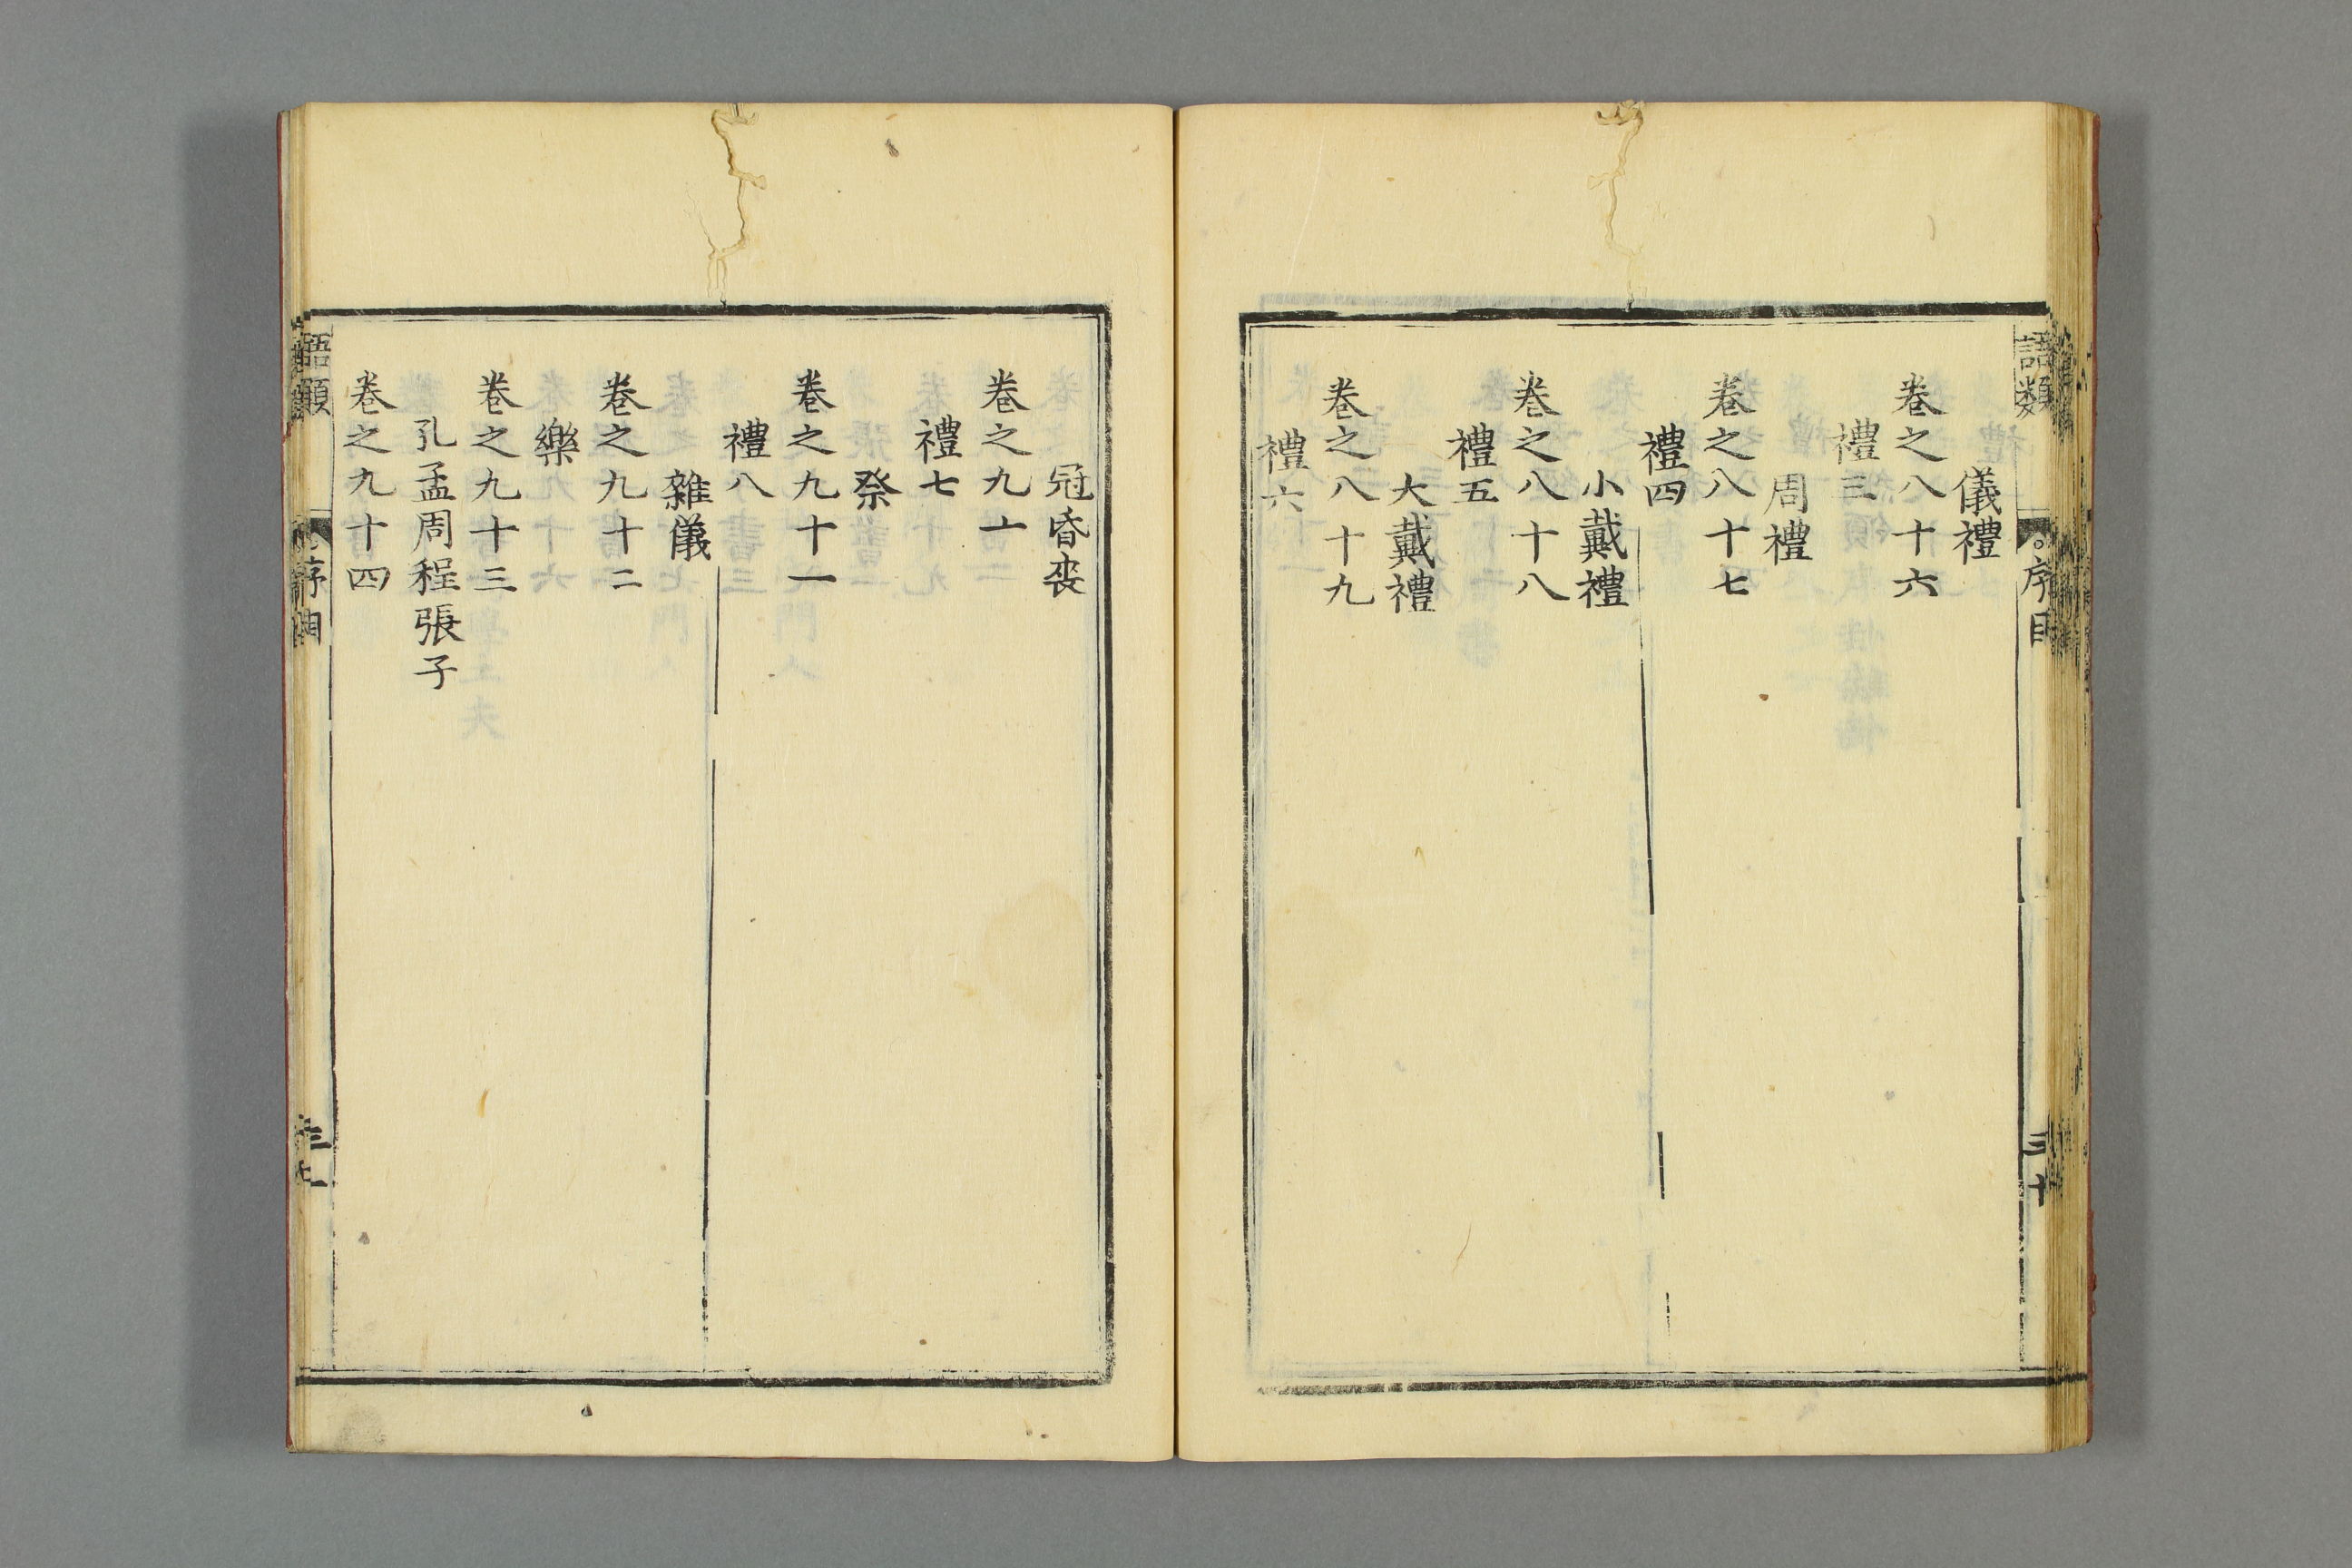 語類
序目
三十
儀禮
卷之八十六
禮三
周禮
卷之八十七
禮四
小戴禮
卷之八十八
禮五
大戴禮
卷之八十九
禮六
冠昏喪
卷之九十
禮七
祭
卷之九十一
禮八
雜儀
卷之九十二
樂
卷之九十三
孔孟周程張子
卷之九十四
語類
序目